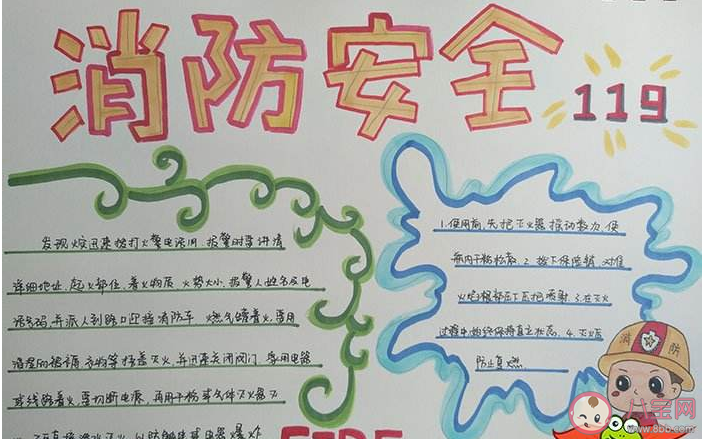 消防安全
119
发现火灾迅速拨打火警电话119,报警时要讲清
详细地址,起火部位,着火物质,火势大小,报警人姓名及电
话号码,并派人到路口迎接消防车 燃气罐着火,要用
浸湿的被褥,衣物等捂盖灭火,并迅速关闭阀门 家用电器
或线路着火,要切断电源,再用干粉或气体灭火器灭
直接泼水灭火,以防触电或电器爆炸
1.使用前,先把灭火器摇动数次,使
瓶内干粉松散 2.拔下保险销,对准
火焰根部压下压把喷射 3.在灭火
过程中,始终保持直立状态 4.灭火后
防止复燃
消防
FIRE
八宝网
www.8bb.com